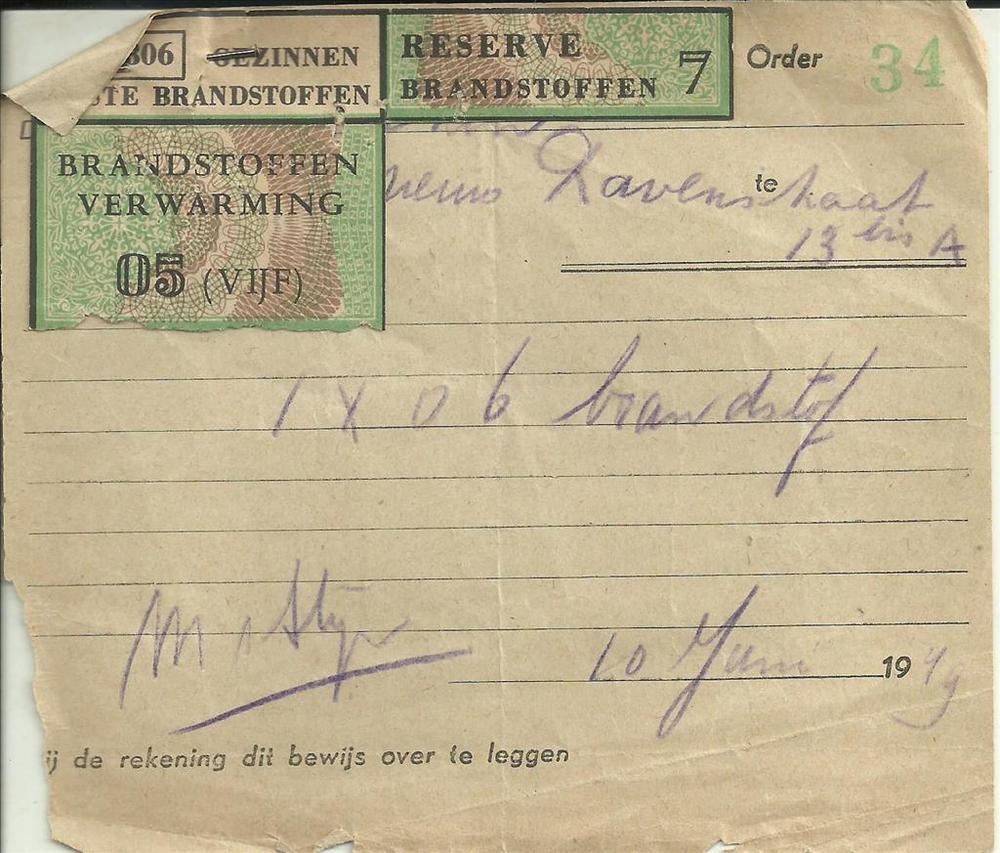 806 GEZINNEN
STE BRANDSTOFFEN
RESERVE
BRANDSTOFFEN 7
Order 34
BRANDSTOFFEN
VERWARMING
05 (VIJF)
te
13 bis A
1 X 06 brandstof
10 Juni 1949
ij de rekening dit bewijs over te leggen